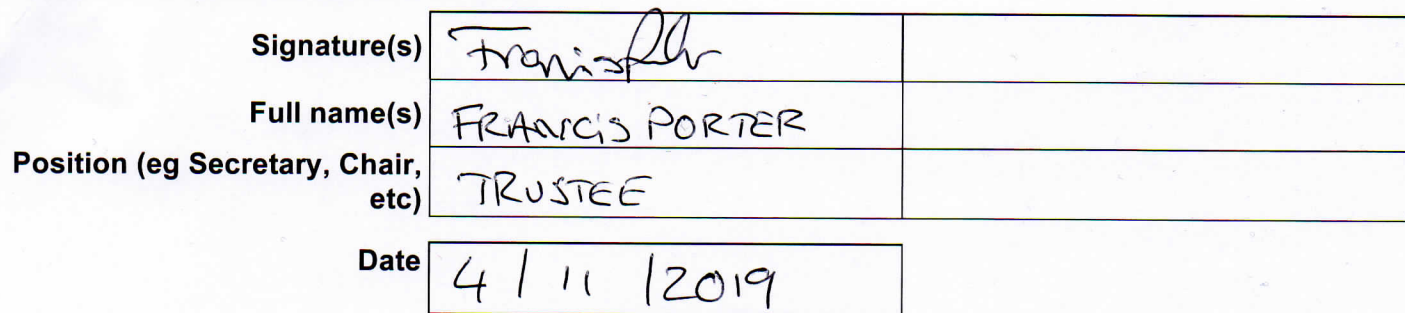 Signature(s)
Full name(s) FRANCIS PORTER
Position (eg Secretary, Chair,
etc) TRUSTEE
Date 4 / 11 / 2019